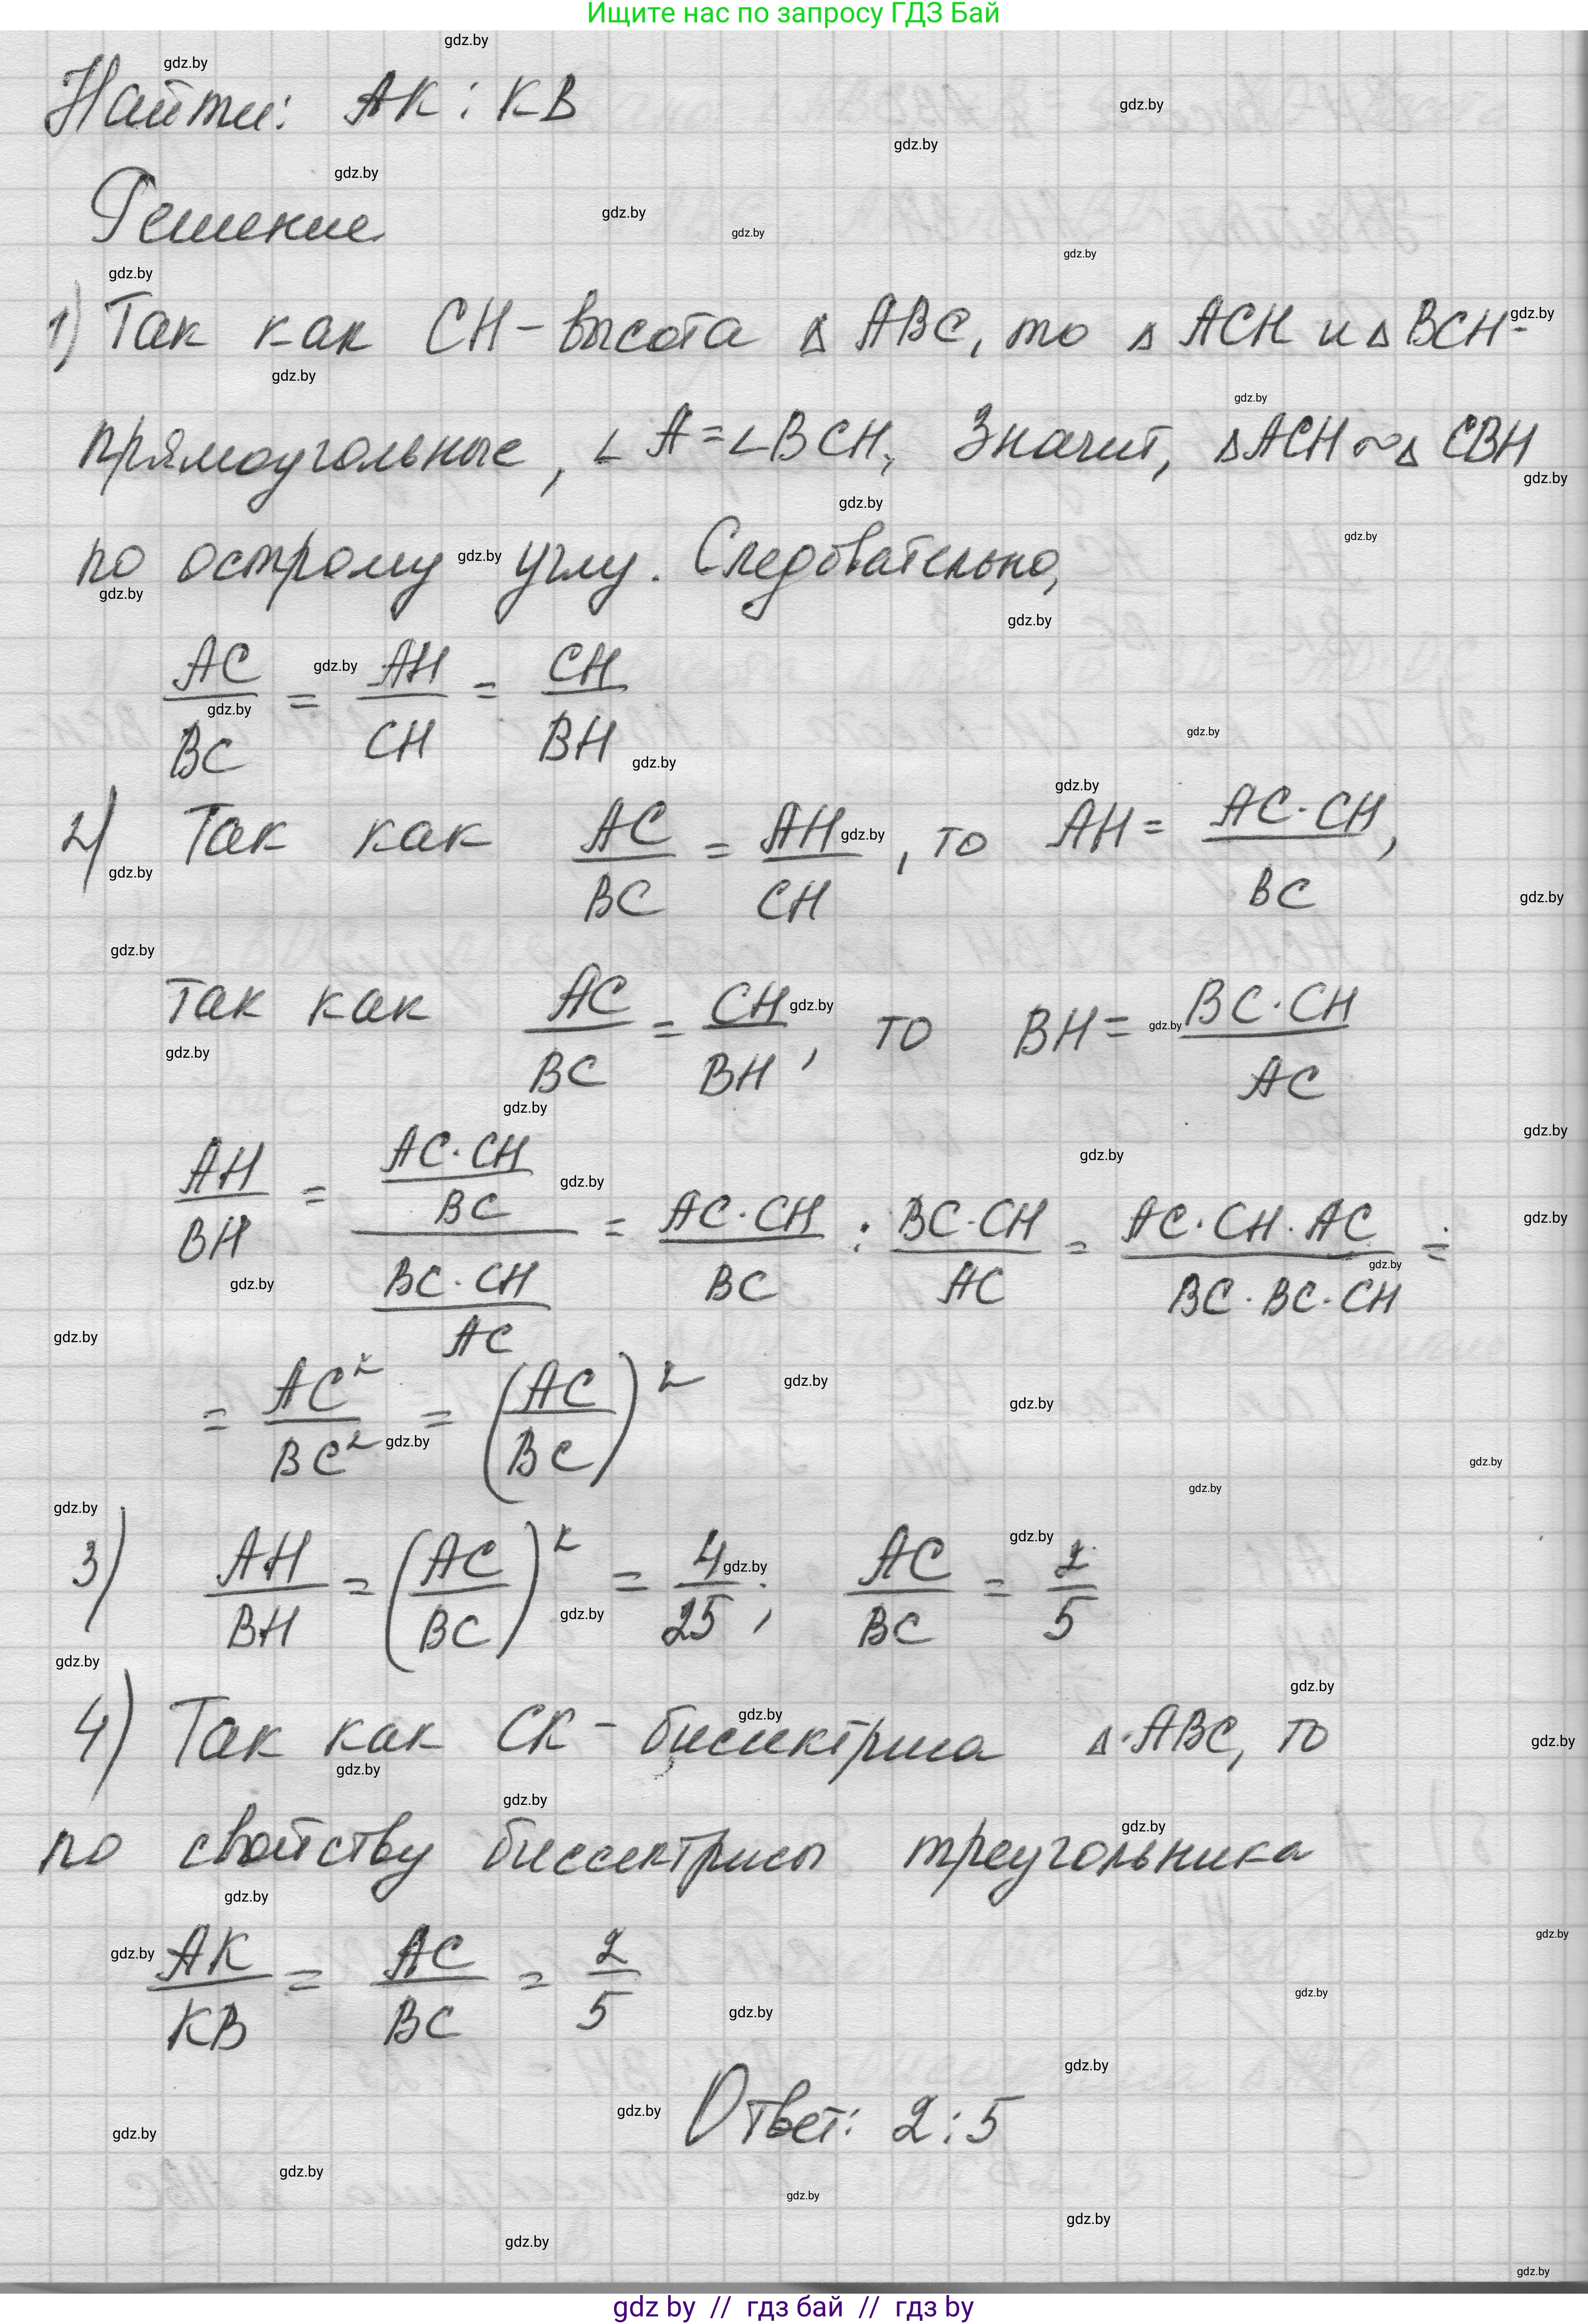 Ищите нас по запросу ГДЗ Бай
Найти: AK : KB
Решение
1) Так как CH - высота △ ABC, то △ ACH и △ BCH -
прямоугольные, ∠A = ∠BCH, Значит, △ACH ~ △ CBH
по острому углу. Следовательно,
AC/BC = AH/CH = CH/BH
2) Так как AC/BC = AH/CH, то AH = AC·CH/BC,
так как AC/BC = CH/BH, то BH = BC·CH/AC
AH/BH = (AC·CH/BC)/(BC·CH/AC) = AC·CH/BC : BC·CH/AC = AC·CH·AC/BC·BC·CH =
= AC²/BC² = (AC/BC)²
3) AH/BH = (AC/BC)² = 4/25; AC/BC = 2/5
4) Так как CK - биссектриса △ ABC, то
по свойству биссектрисы треугольника
AK/KB = AC/BC = 2/5
Ответ: 2:5
gdz by // гдз бай // гдз by